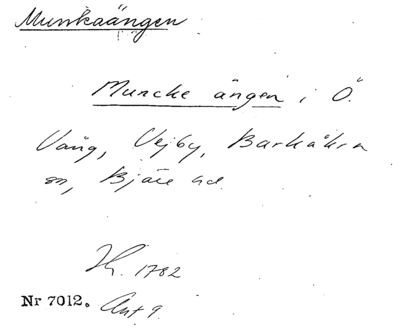 Munkaängen
Muncke ängen i Ö.
Vång, Vejby, Barkåkra
sn, Bjäre hd.
Hr. 1782
Nr 7012. Ant 9.